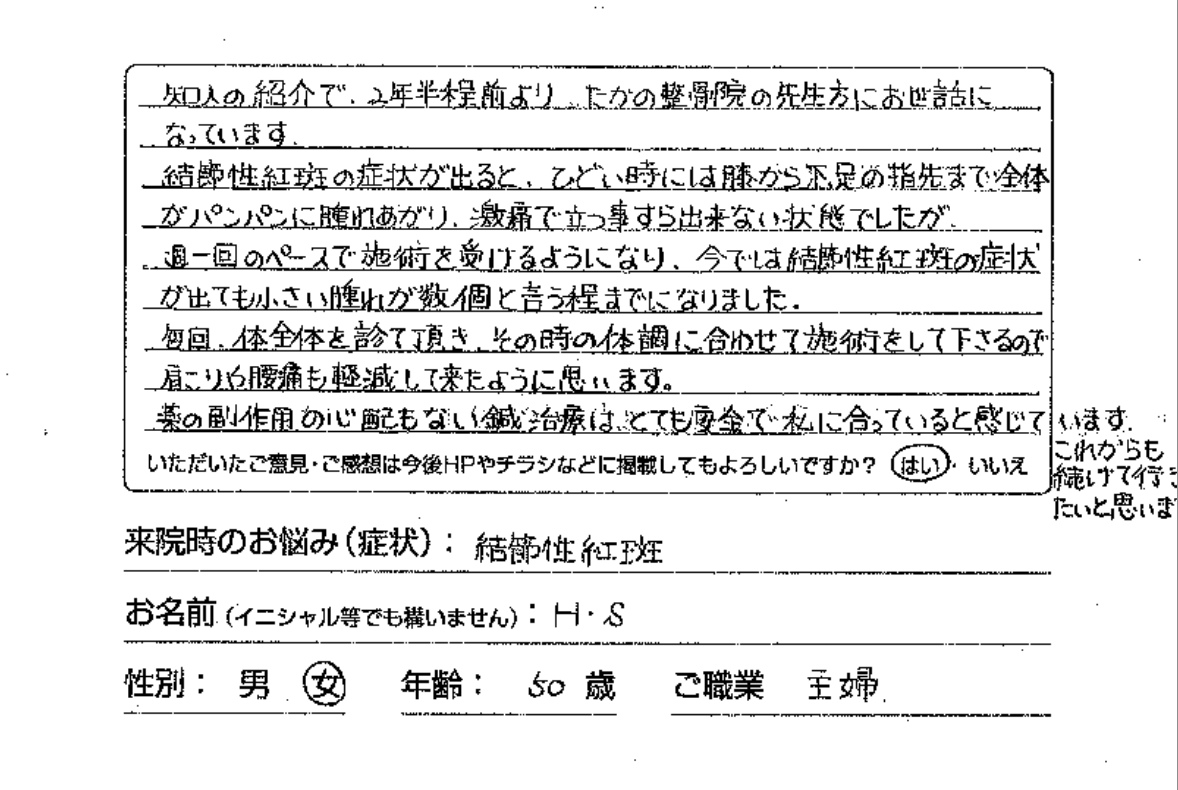 知人の紹介で、2年半程前より、たかの整骨院の先生方にお世話に
なっています。
結節性紅斑の症状が出ると、ひどい時には膝から下足の指先まで全体
がパンパンに腫れあがり、激痛で立つ事すら出来ない状態でしたが、
週一回のペースで施術を受けるようになり、今では結節性紅斑の症状
が出ても小さい腫れが数個と言う程までになりました。
毎回、体全体を診て頂き、その時の体調に合わせて施術をして下さるので
肩こりや腰痛も軽減して来たように思います。
薬の副作用の心配もない鍼治療は、とても安全で私に合っていると感じています。
これからも
続けて行き
たいと思いま
いただいたご意見・ご感想は今後HPやチラシなどに掲載してもよろしいですか? はい・いいえ
来院時のお悩み(症状):結節性紅斑
お名前(イニシャル等でも構いません):H・S
性別: 男 女 年齢: 50 歳 ご職業 主婦